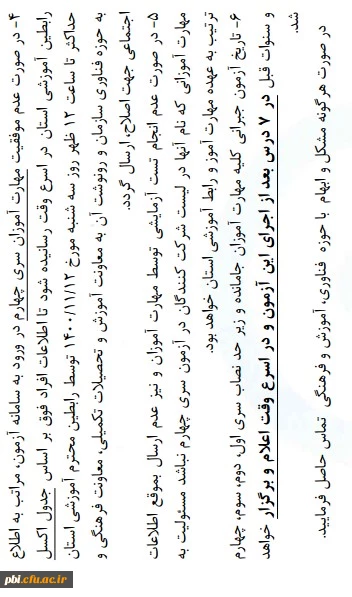 ۴- در صورت عدم موفقیت مهارت آموزان سری چهارم در ورود به سامانه آزمون، مراتب به اطلاع
رابطین آموزشی استان در اسرع وقت رسانیده شود تا اطلاعات افراد فوق بر اساس جدول اکسل
حداکثر تا ساعت ۱۲ ظهر روز سه شنبه مورخ ۱۴۰۰/۱۱/۱۲ توسط رابطین محترم آموزشی استان
به حوزه فناوری سازمان و رونوشت آن به معاونت آموزش و تحصیلات تکمیلی، معاونت فرهنگی و
اجتماعی جهت اصلاح، ارسال گردد.
۵- در صورت عدم انجام تست آزمایشی توسط مهارت آموزان و نیز عدم ارسال بموقع اطلاعات
مهارت آموزانی که نام آنها در لیست شرکت کنندگان در آزمون سری چهارم نباشد مسئولیت به
ترتیب به عهده مهارت آموز و رابط آموزشی استان خواهد بود.
۶- تاریخ آزمون جبرانی کلیه مهارت آموزان جامانده و زیر حد نصاب سری اول، دوم، سوم، چهارم
و سنوات قبل در ۷ درس بعد از اجرای این آزمون و در اسرع وقت اعلام و برگزار خواهد
شد.
در صورت هرگونه مشکل و ابهام با حوزه فناوری، آموزش و فرهنگی تماس حاصل فرمایید.
pbi.cfu.ac.ir